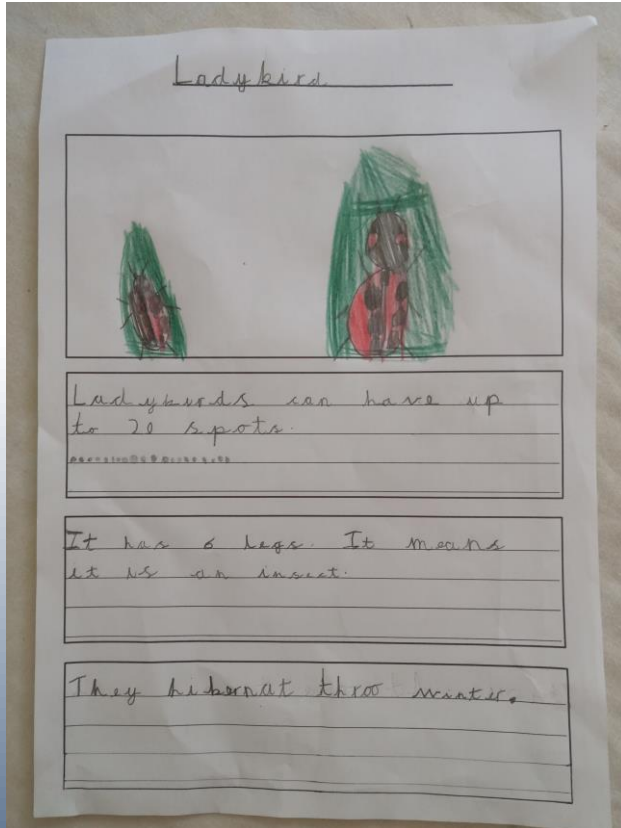 Ladybird
Ladybirds can have up
to 20 spots.
It has 6 legs. It means
it is an insect.
They hibernat throo winter.